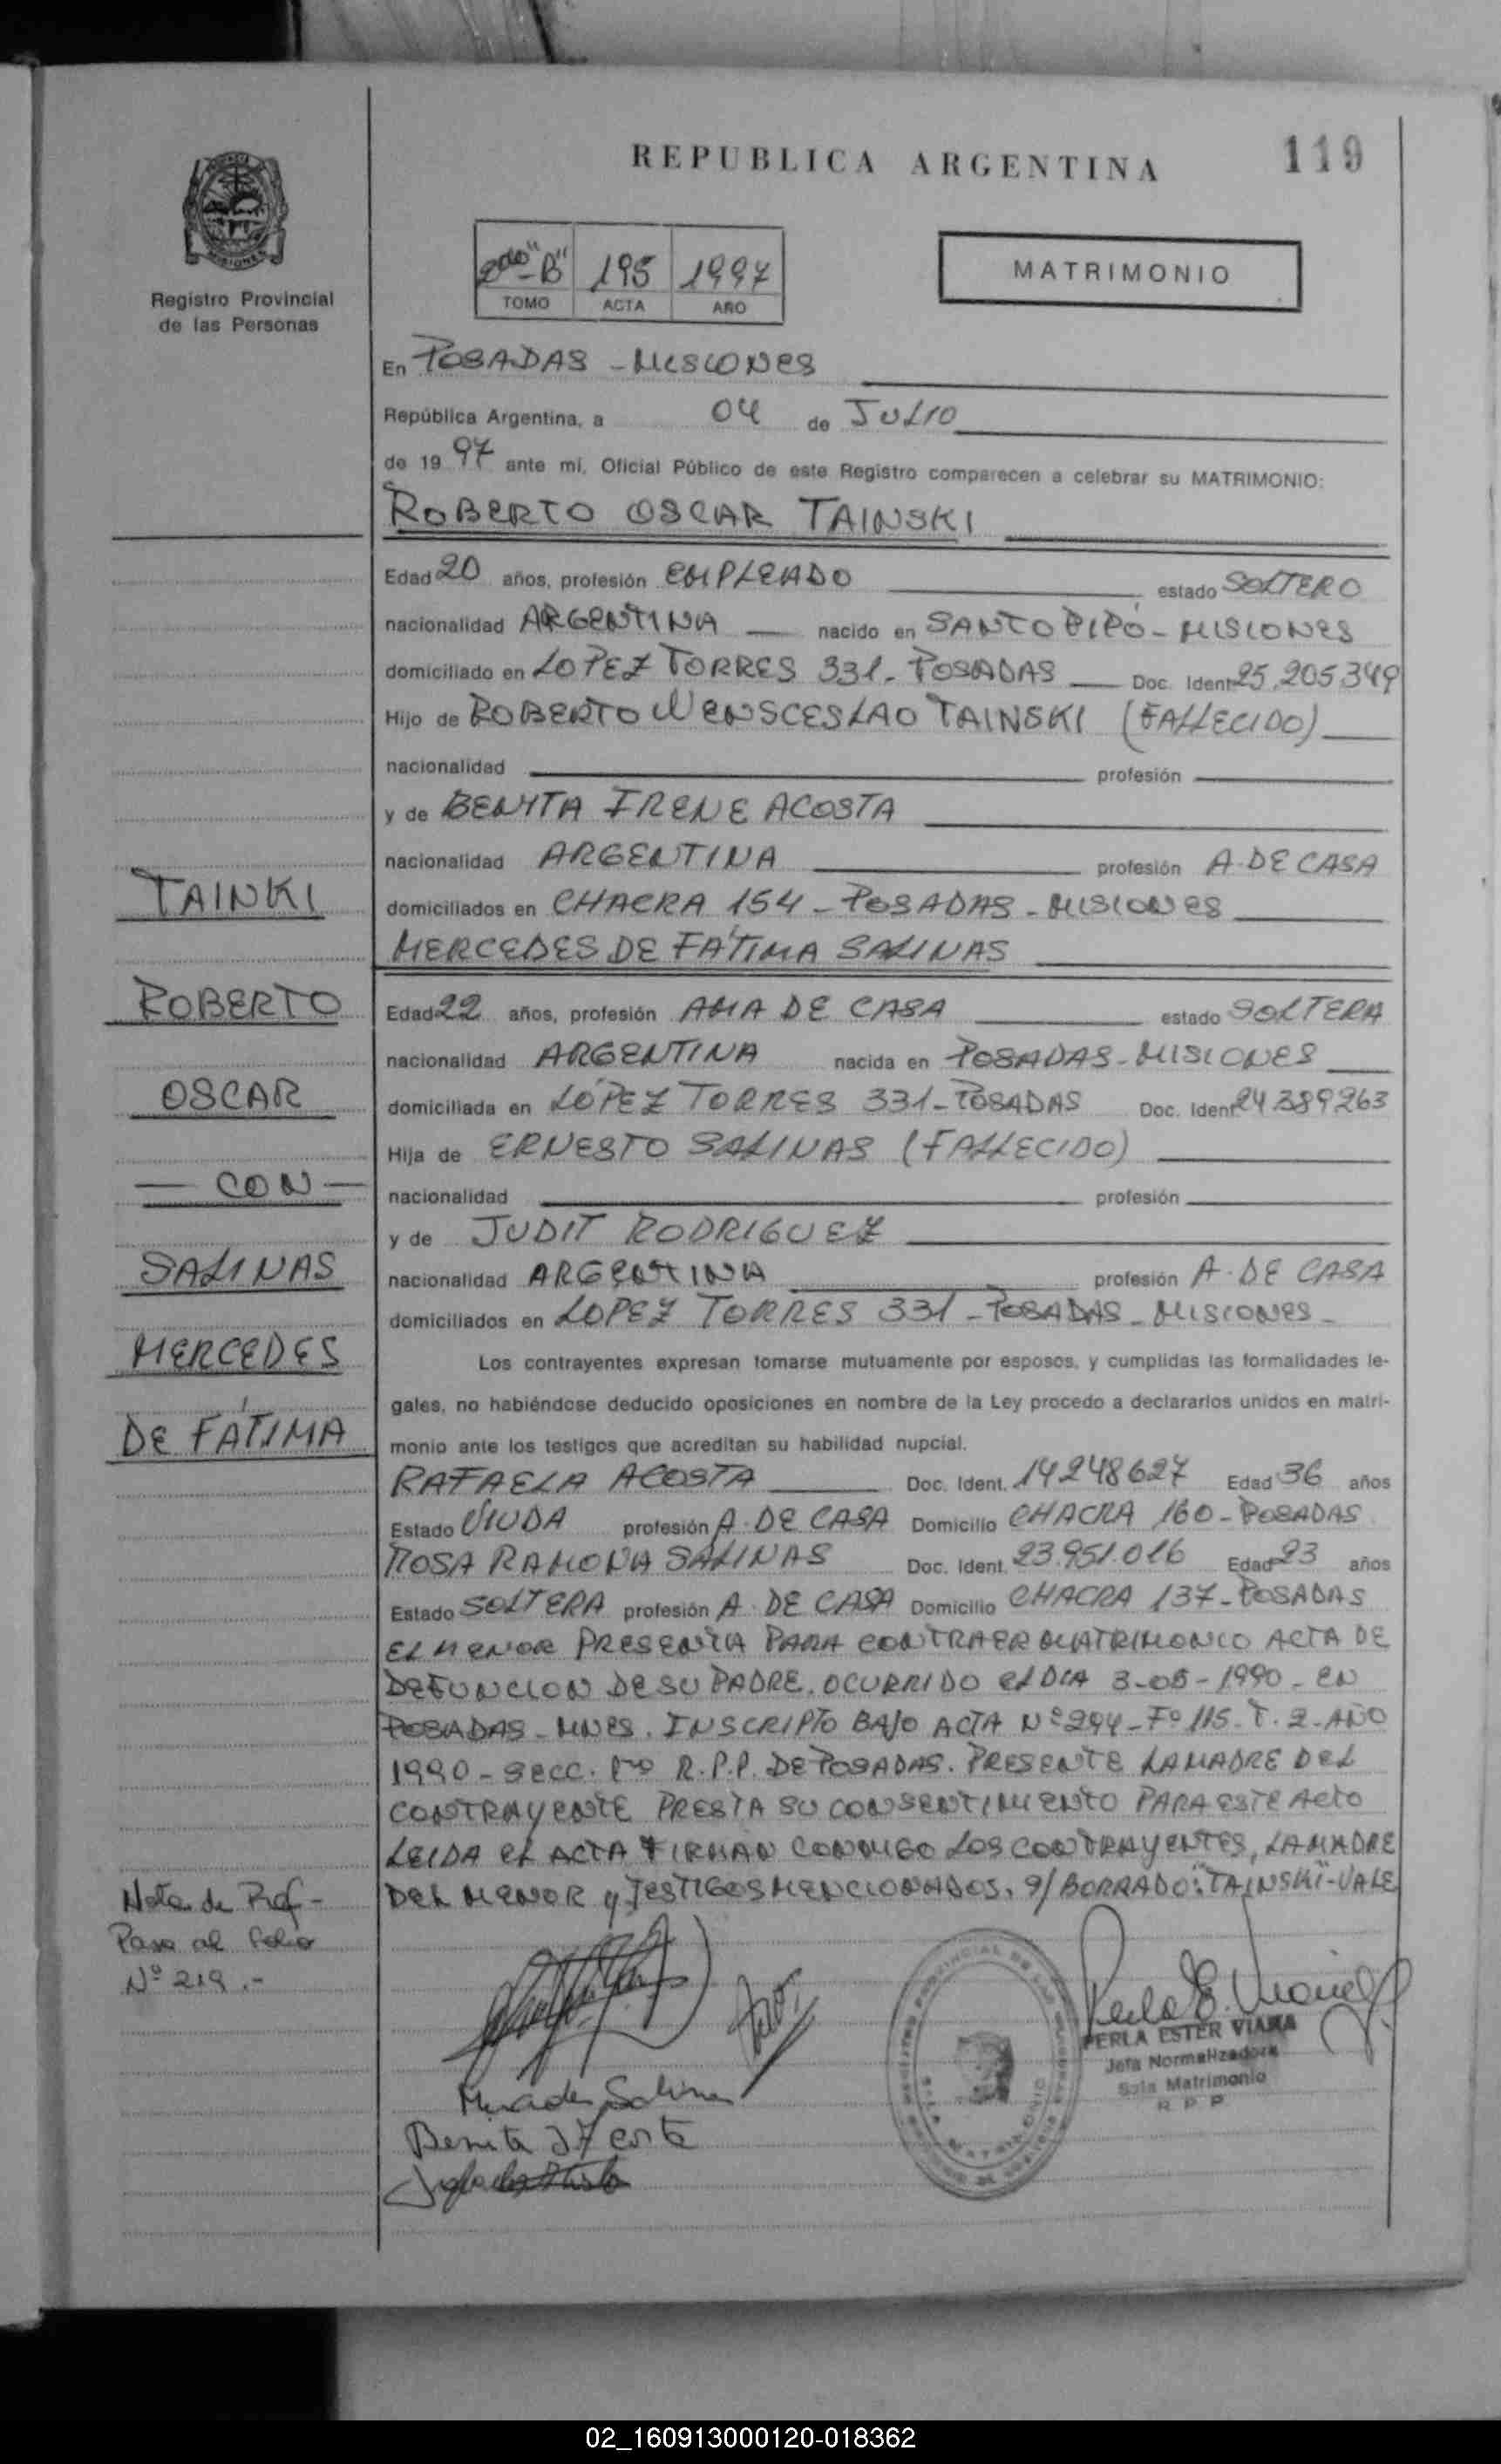 REPUBLICA ARGENTINA
119
MISIONES
Registro Provincial
de las Personas
2do "B" 195 1997
TOMO ACTA AÑO
MATRIMONIO
En POSADAS - MISIONES
República Argentina, a 04 de JULIO
de 19 97 ante mí, Oficial Público de este Registro comparecen a celebrar su MATRIMONIO:
ROBERTO OSCAR TAINSKI
Edad 20 años, profesión EMPLEADO estado SOLTERO
nacionalidad ARGENTINA nacido en SANTO PIPÓ - MISIONES
domiciliado en LOPEZ TORRES 331 - POSADAS Doc. Ident. 25.205.349
Hijo de ROBERTO WENSCESLAO TAINSKI (FALLECIDO)
nacionalidad profesión
y de BENITA IRENE ACOSTA
nacionalidad ARGENTINA profesión A. DE CASA
domiciliados en CHACRA 154 - POSADAS - MISIONES
MERCEDES DE FÁTIMA SALINAS
Edad 22 años, profesión AMA DE CASA estado SOLTERA
nacionalidad ARGENTINA nacida en POSADAS - MISIONES
domiciliada en LÓPEZ TORRES 331 - POSADAS Doc. Ident. 24.389263
Hija de ERNESTO SALINAS (FALLECIDO)
nacionalidad profesión
y de JUDIT RODRIGUEZ
nacionalidad ARGENTINA profesión A. DE CASA
domiciliados en LOPEZ TORRES 331 - POSADAS - MISIONES -
Los contrayentes expresan tomarse mutuamente por esposos, y cumplidas las formalidades le-
gales, no habiéndose deducido oposiciones en nombre de la Ley procedo a declararlos unidos en matri-
monio ante los testigos que acreditan su habilidad nupcial.
RAFAELA ACOSTA Doc. Ident. 14248627 Edad 36 años
Estado VIUDA profesión A. DE CASA Domicilio CHACRA 160 - POSADAS
ROSA RAMONA SALINAS Doc. Ident. 23.951.016 Edad 23 años
Estado SOLTERA profesión A. DE CASA Domicilio CHACRA 137 - POSADAS
EL MENOR PRESENTA PARA CONTRAER MATRIMONIO ACTA DE
DEFUNCION DE SU PADRE. OCURRIDO EL DIA 3-05-1990 - EN
POSADAS - MNES. INSCRIPTO BAJO ACTA Nº 294 - Fº 115 - T. 2 - AÑO
1990 - SECC. R.P.P. DE POSADAS. PRESENTE LA MADRE DEL
CONTRAYENTE PRESTA SU CONSENTIMIENTO PARA ESTE ACTO
LEIDA EL ACTA FIRMAN CONMIGO LOS CONTRAYENTES, LA MADRE
DEL MENOR y TESTIGOS MENCIONADOS. S/ BORRADO: "TAINSKI" - VALE
TAINKI
ROBERTO
OSCAR
- CON -
SALINAS
MERCEDES
DE FÁTIMA
Nota de Ref -
Pasa al folio
Nº 219.-
Mercedes Salinas
Benita I Acosta
PERLA ESTER VIANA
Jefa Normalizadora
Sala Matrimonio
R P P
02_160913000120-018362